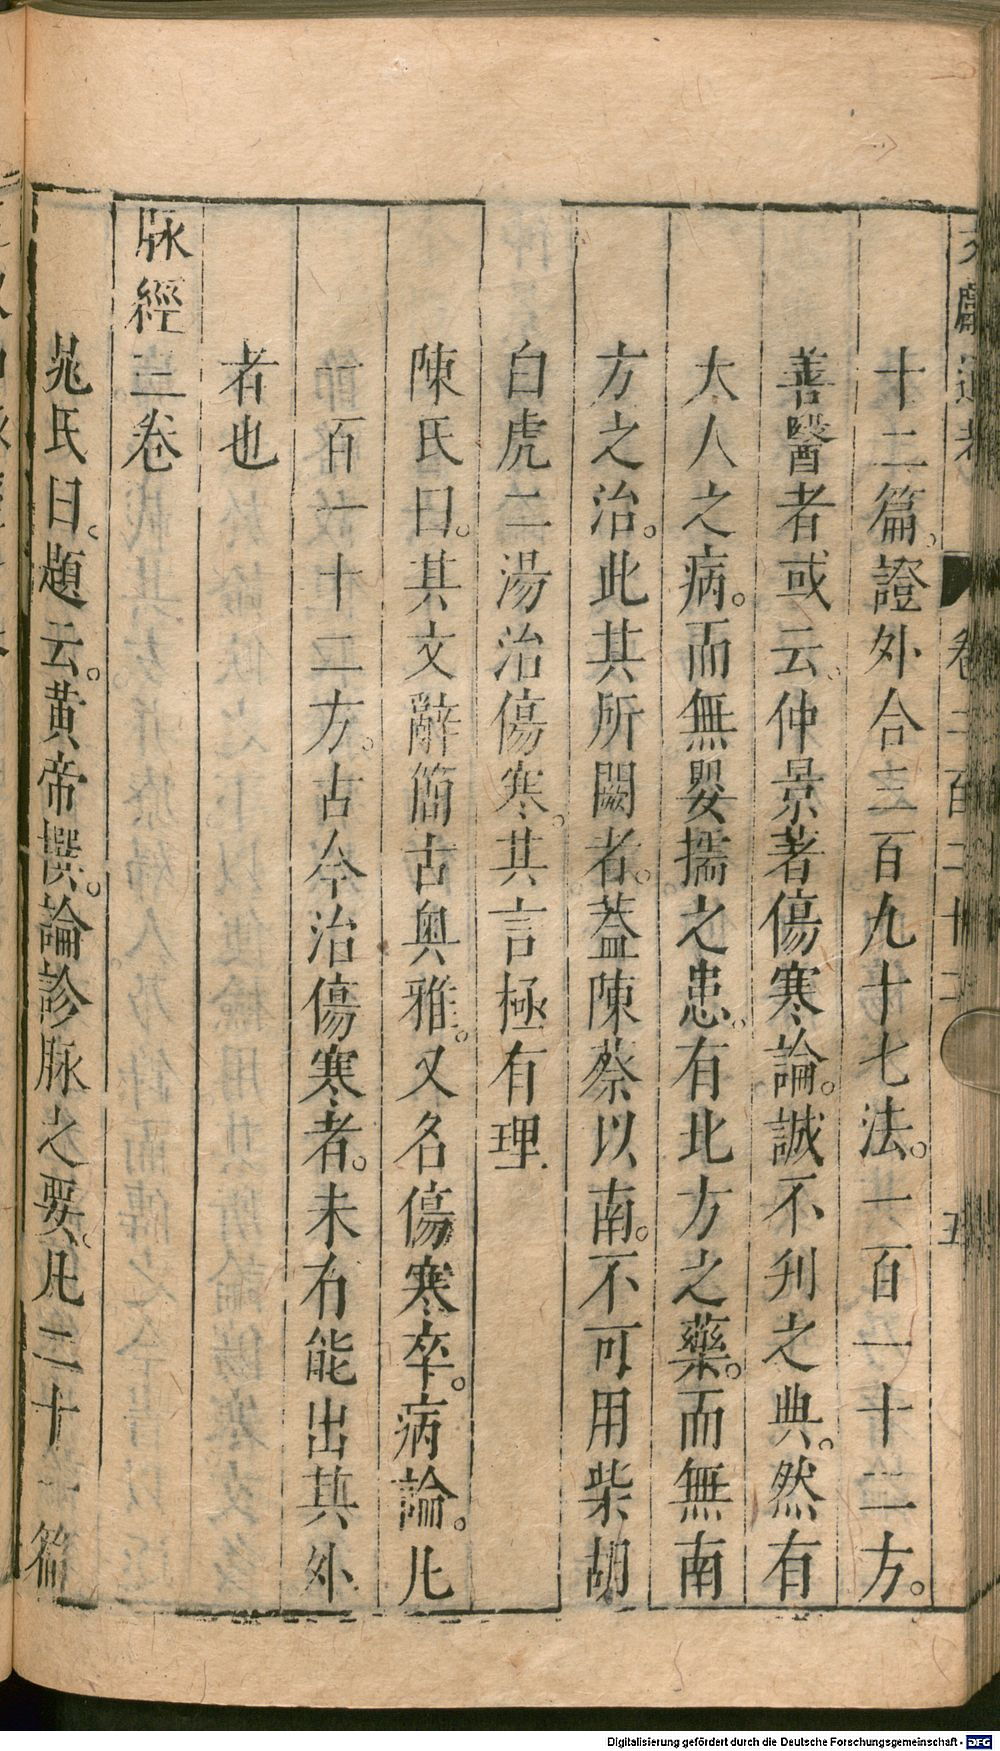 文獻通考 卷二百二十二 五
十二篇。證外合三百九十七法。一百一十二方。
善醫者或云、仲景著傷寒論。誠不刋之典。然有
大人之病。而無嬰孺之患。有北方之藥。而無南
方之治。此其所闕者。蓋陳蔡以南。不可用柴胡
白虎二湯治傷寒。其言極有理
陳氏曰。其文辭簡古奥雅。又名傷寒卒。病論。凡
一百一十二方。古今治傷寒者。未有能出其外
者也
脉經三卷
晁氏曰。題云。黃帝撰。論診脉之要。凡二十一篇
Digitalisierung gefördert durch die Deutsche Forschungsgemeinschaft - DFG